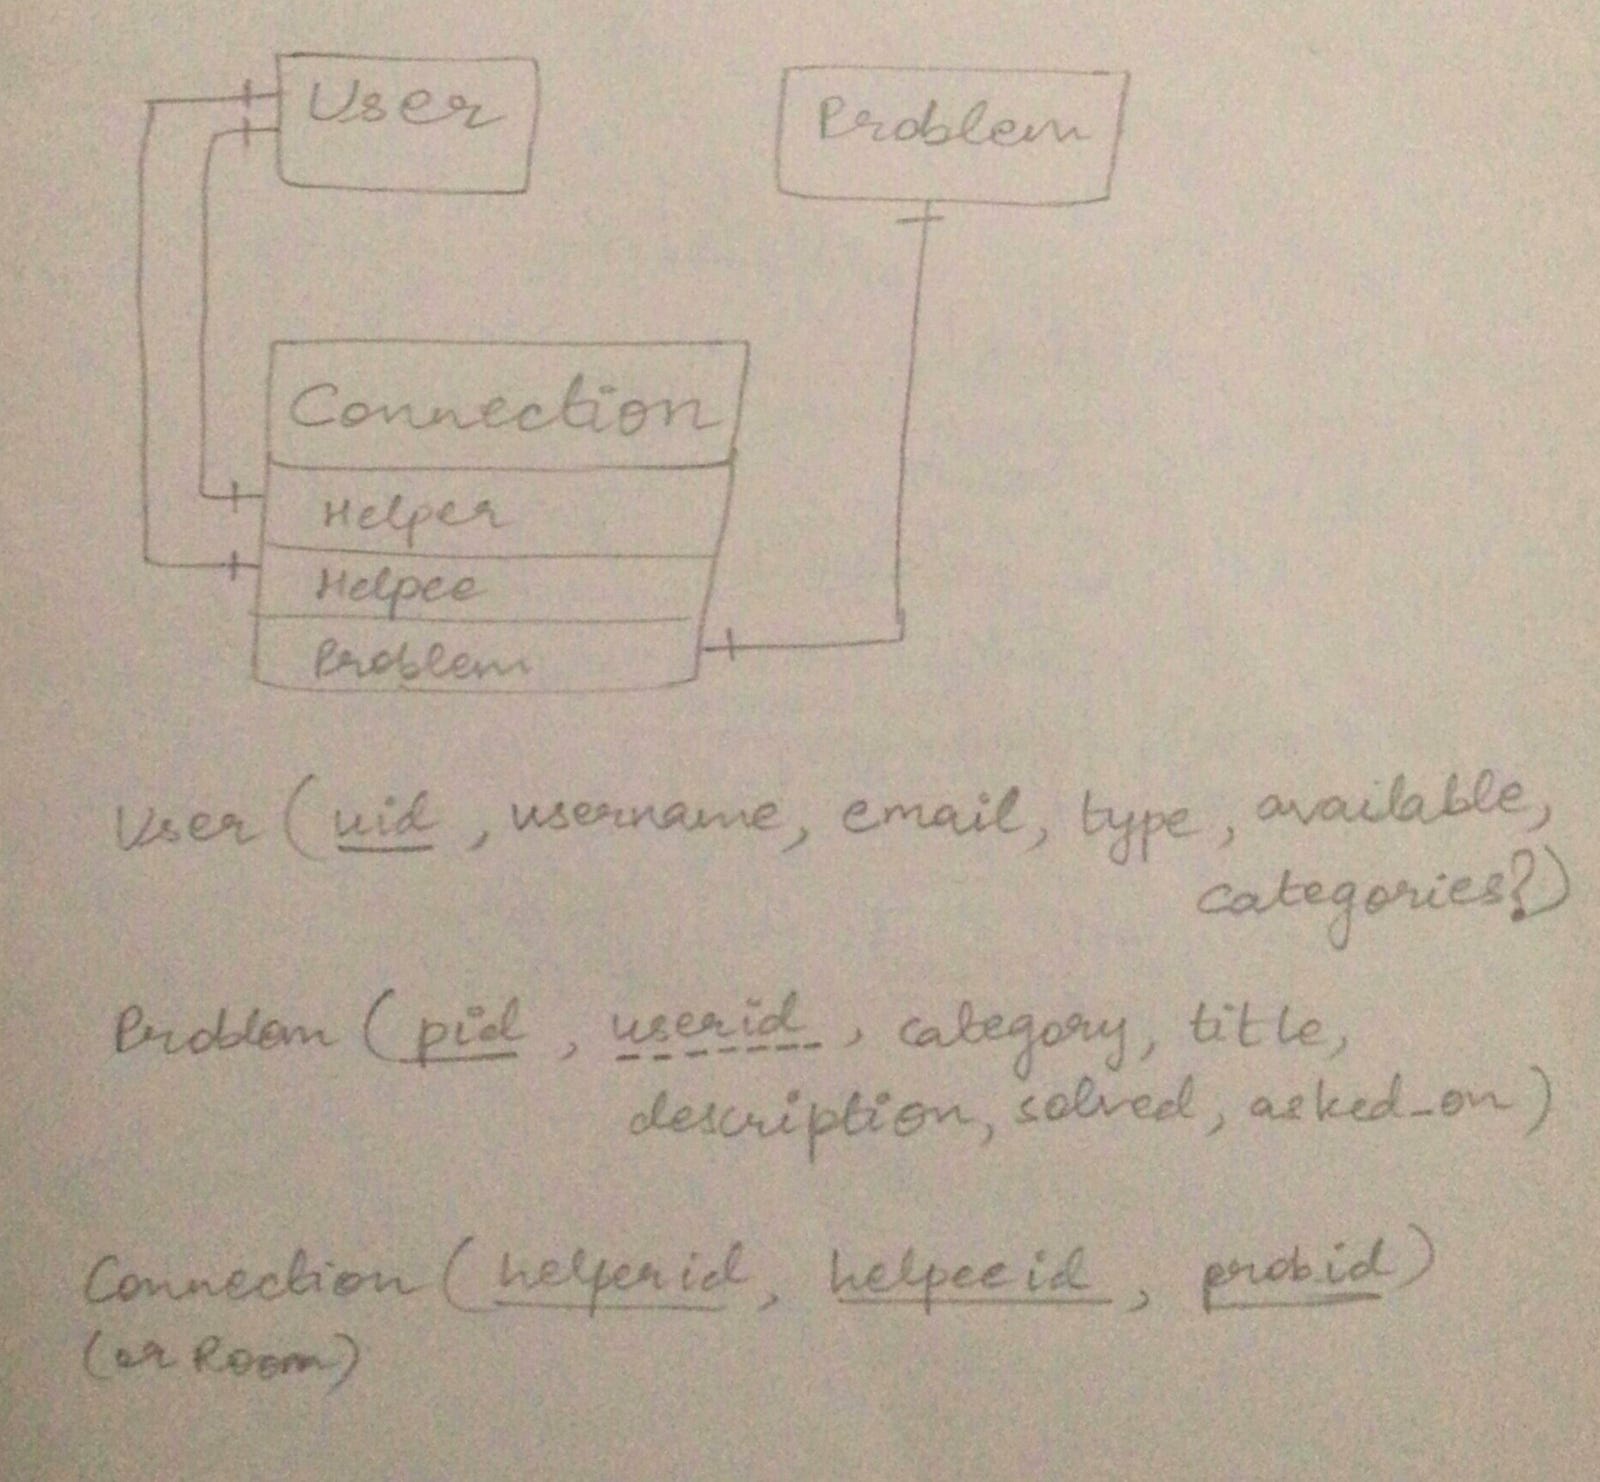 User
Problem
Connection
Helper
Helpee
Problem
User (uid, username, email, type, available,
categories?)
Problem (pid, userid, category, title,
description, solved, asked_on)
Connection (helperid, helpeeid, probid)
(or Room)